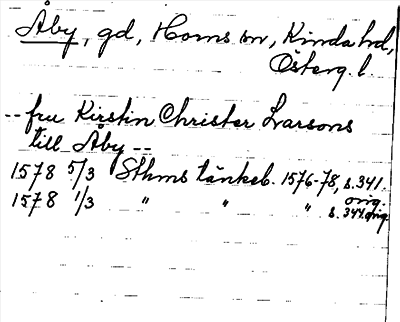 Åby, gd, Horns sn, Kinda hd,
Österg. l.
-- fru Kirstin Christer Larsons
till Åby --
1578 5/3 Sthms tänkeb. 1576-78, s. 341.
orig.
1578 1/3 " " " s. 344 orig.